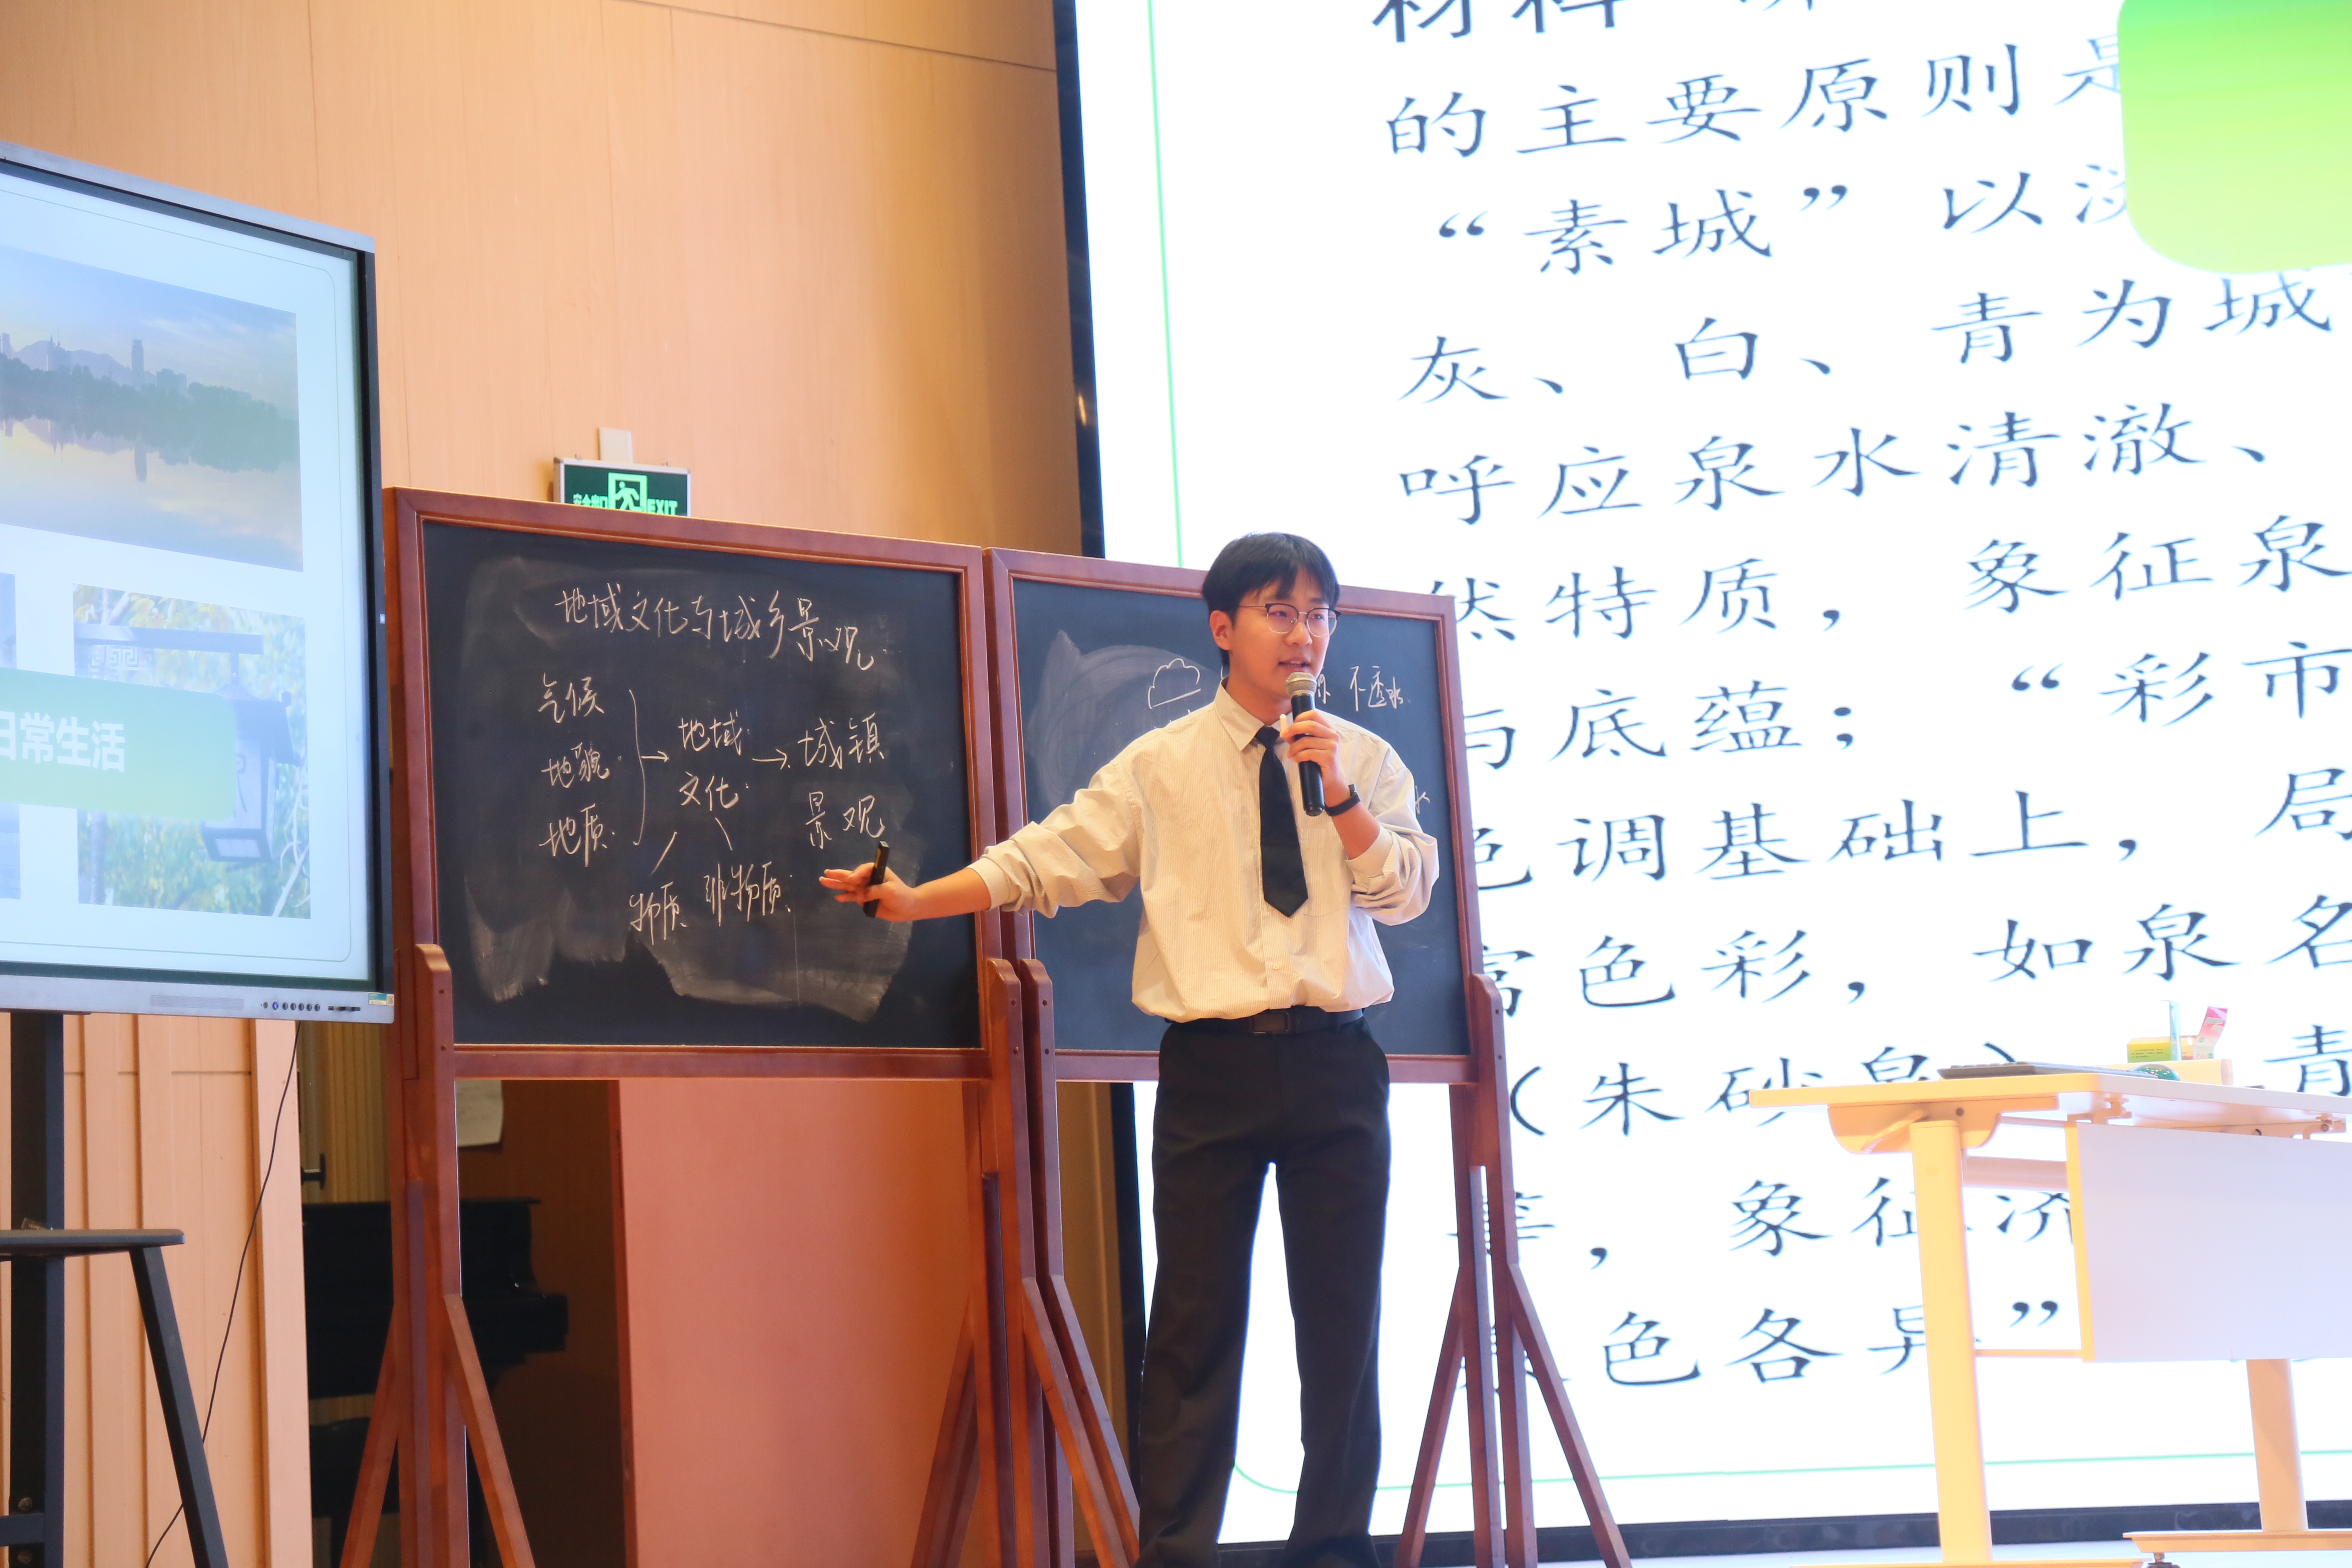 日常生活
安全出口 EXIT
地域文化与城乡景观
气候
地貌
地质
地域
文化
城镇
景观
物质 非物质
不透水
的主要原则是
“素城”以淡
灰、白、青为城
呼应泉水清澈、
然特质,象征泉
与底蕴;“彩市
色调基础上,局
富色彩,如泉名
(朱砂泉) 青
等,象征济
色各异”